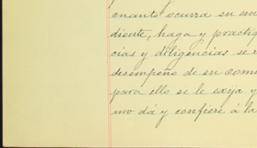 cuanto ocurra en su
diente, haga y practiq
cias y diligencias se r
desempeño de su come
para ello se le exija y
mo dá y confiere á la